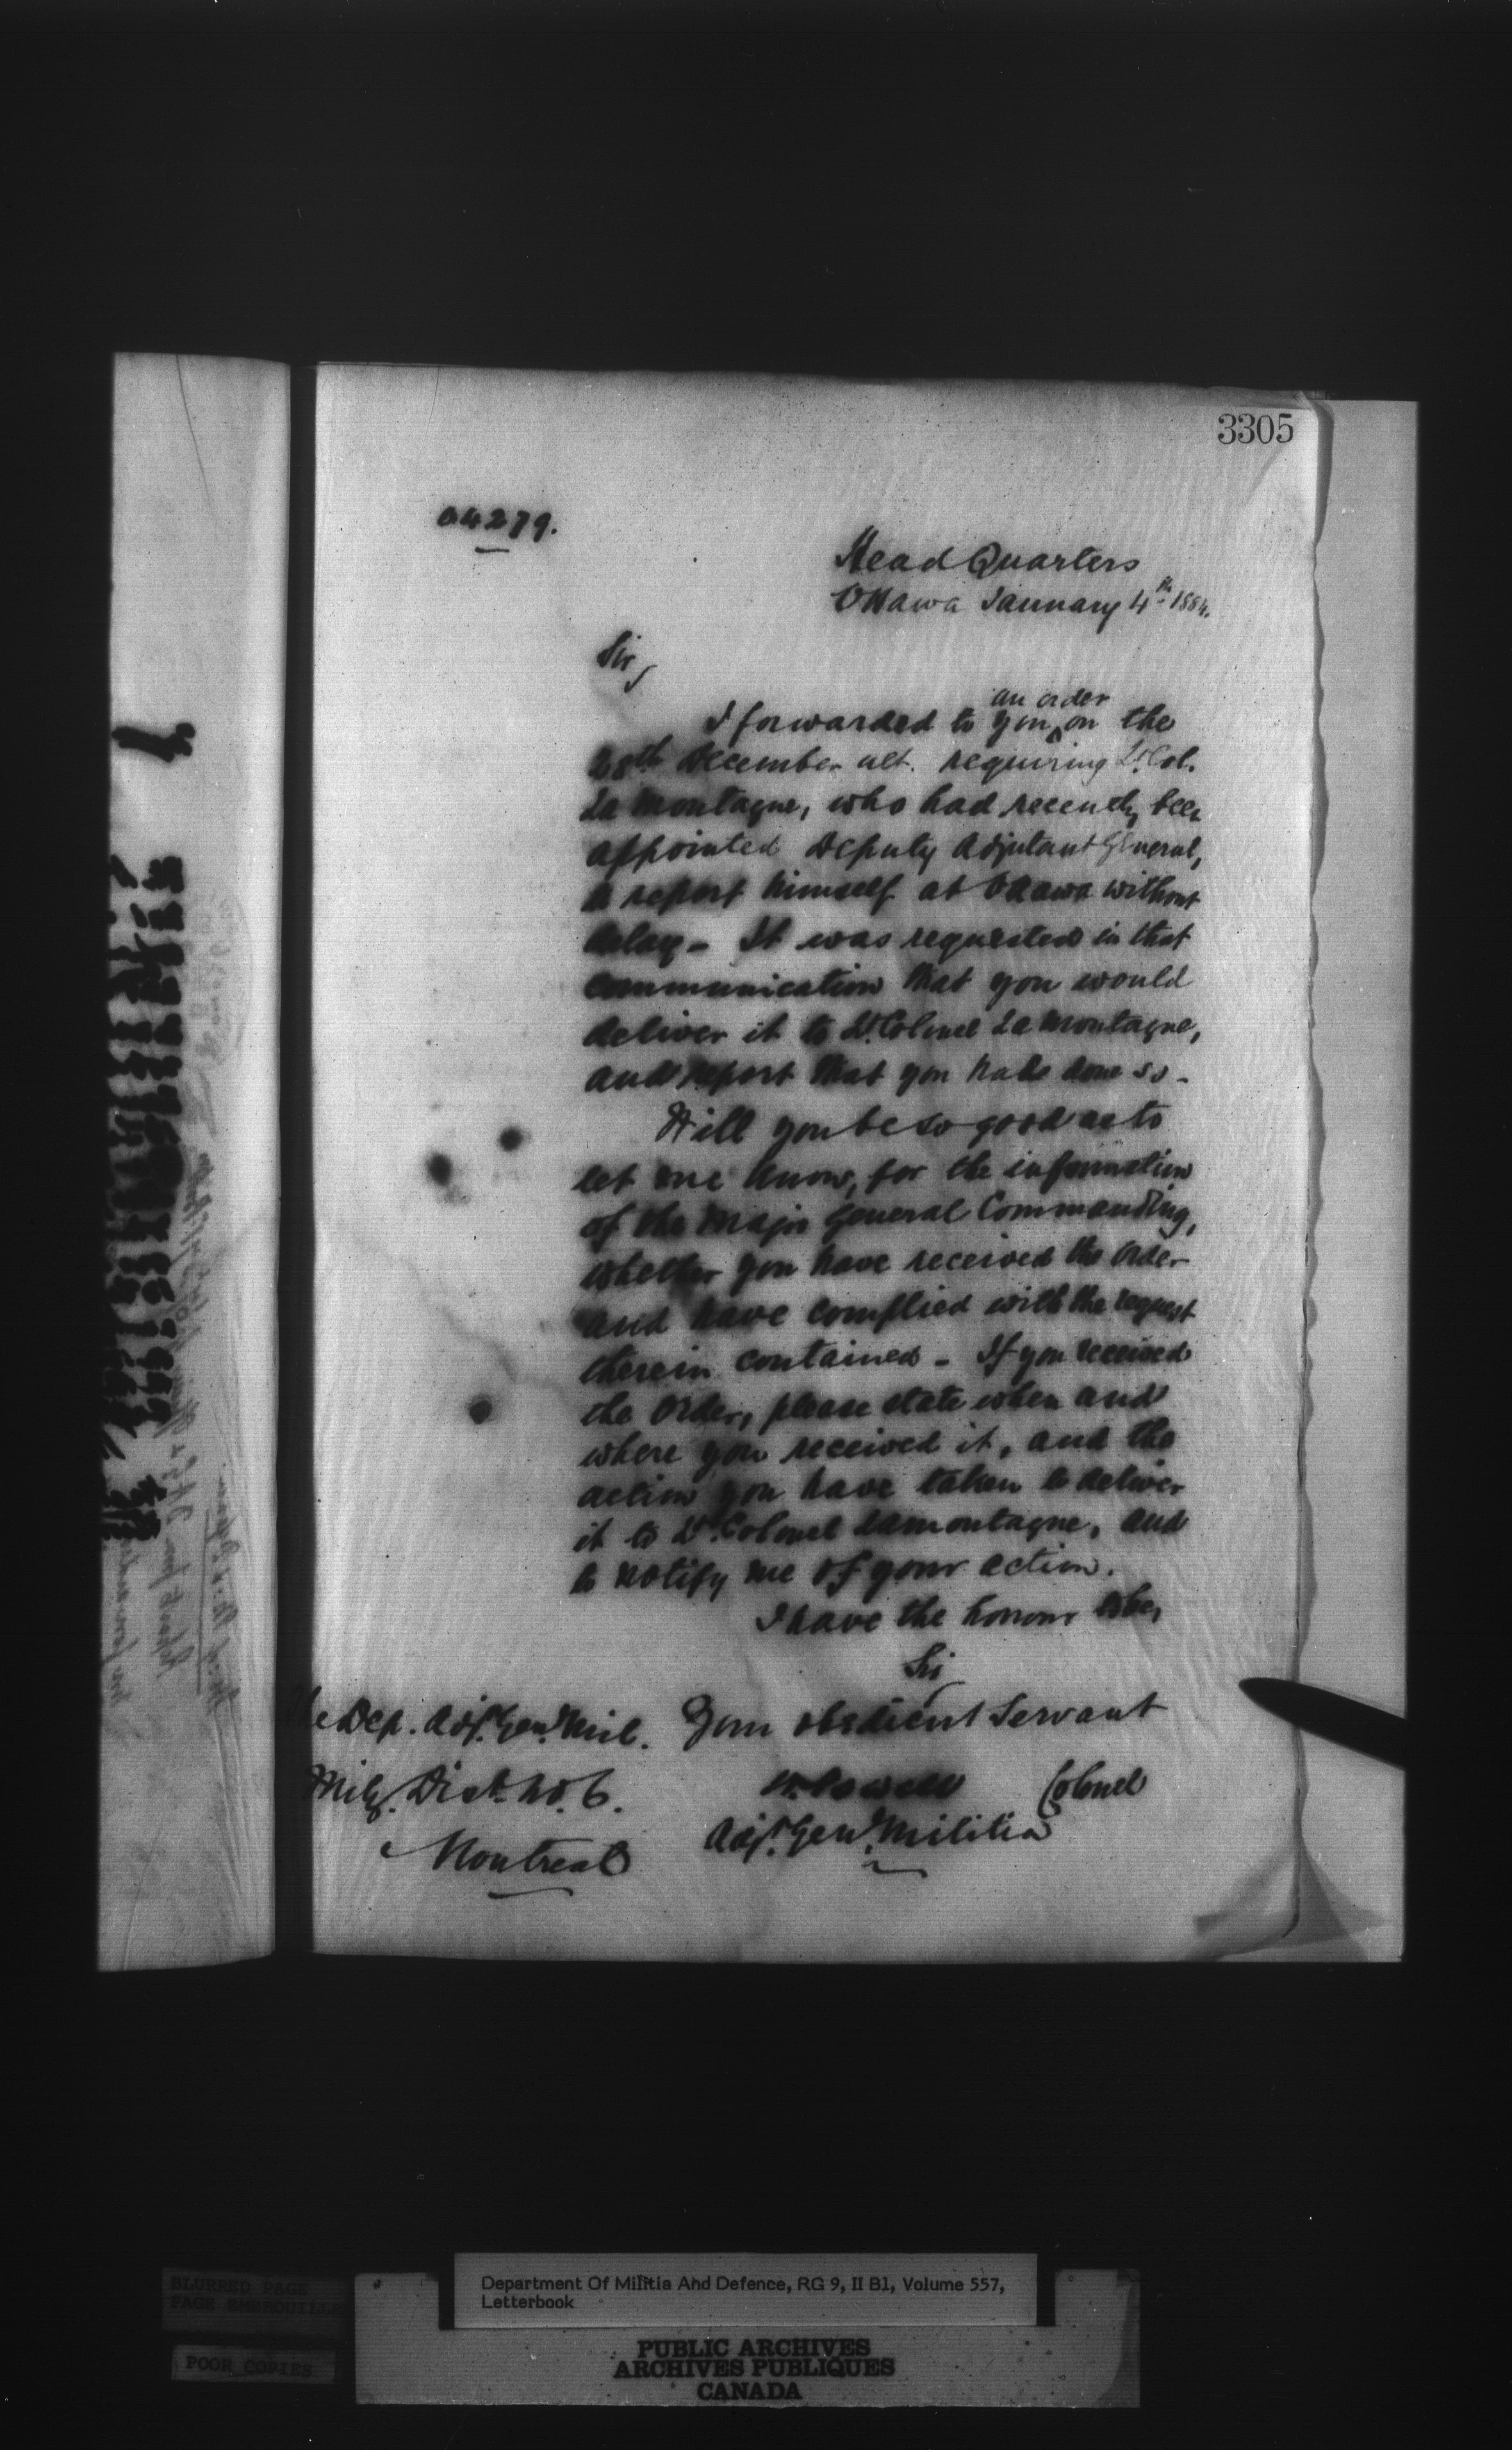 3305
04279.
Head Quarters
Ottawa January 4th 1884.
Sir,
an order
I forwarded to you on the
28th December ult. requiring Lt. Col.
La Montagne, who had recently been
appointed Deputy Adjutant General,
to report himself at Ottawa without
delay - It was requested in that
communication that you would
deliver it to Lt. Colonel La Montagne,
and report that you had done so -
Will you be so good as to
let me know, for the information
of the Major General Commanding,
whether you have received the order
and have complied with the request
therein contained - If you received
the order, please state when and
where you received it, and the
action you have taken to deliver
it to Lt. Colonel Lamontagne, and
to notify me of your action.
I have the honour to be,
Sir
Your obedient Servant
W. Powell Colonel
Adjt. Genl. Militia
The Dep. Adjt. Genl. Mil.
Mily. Dist. No. 6.
Montreal
BLURRED PAGE
PAGE EMBROUILLE
POOR COPIES
Department Of Militia And Defence, RG 9, II B1, Volume 557,
Letterbook
PUBLIC ARCHIVES
ARCHIVES PUBLIQUES
CANADA